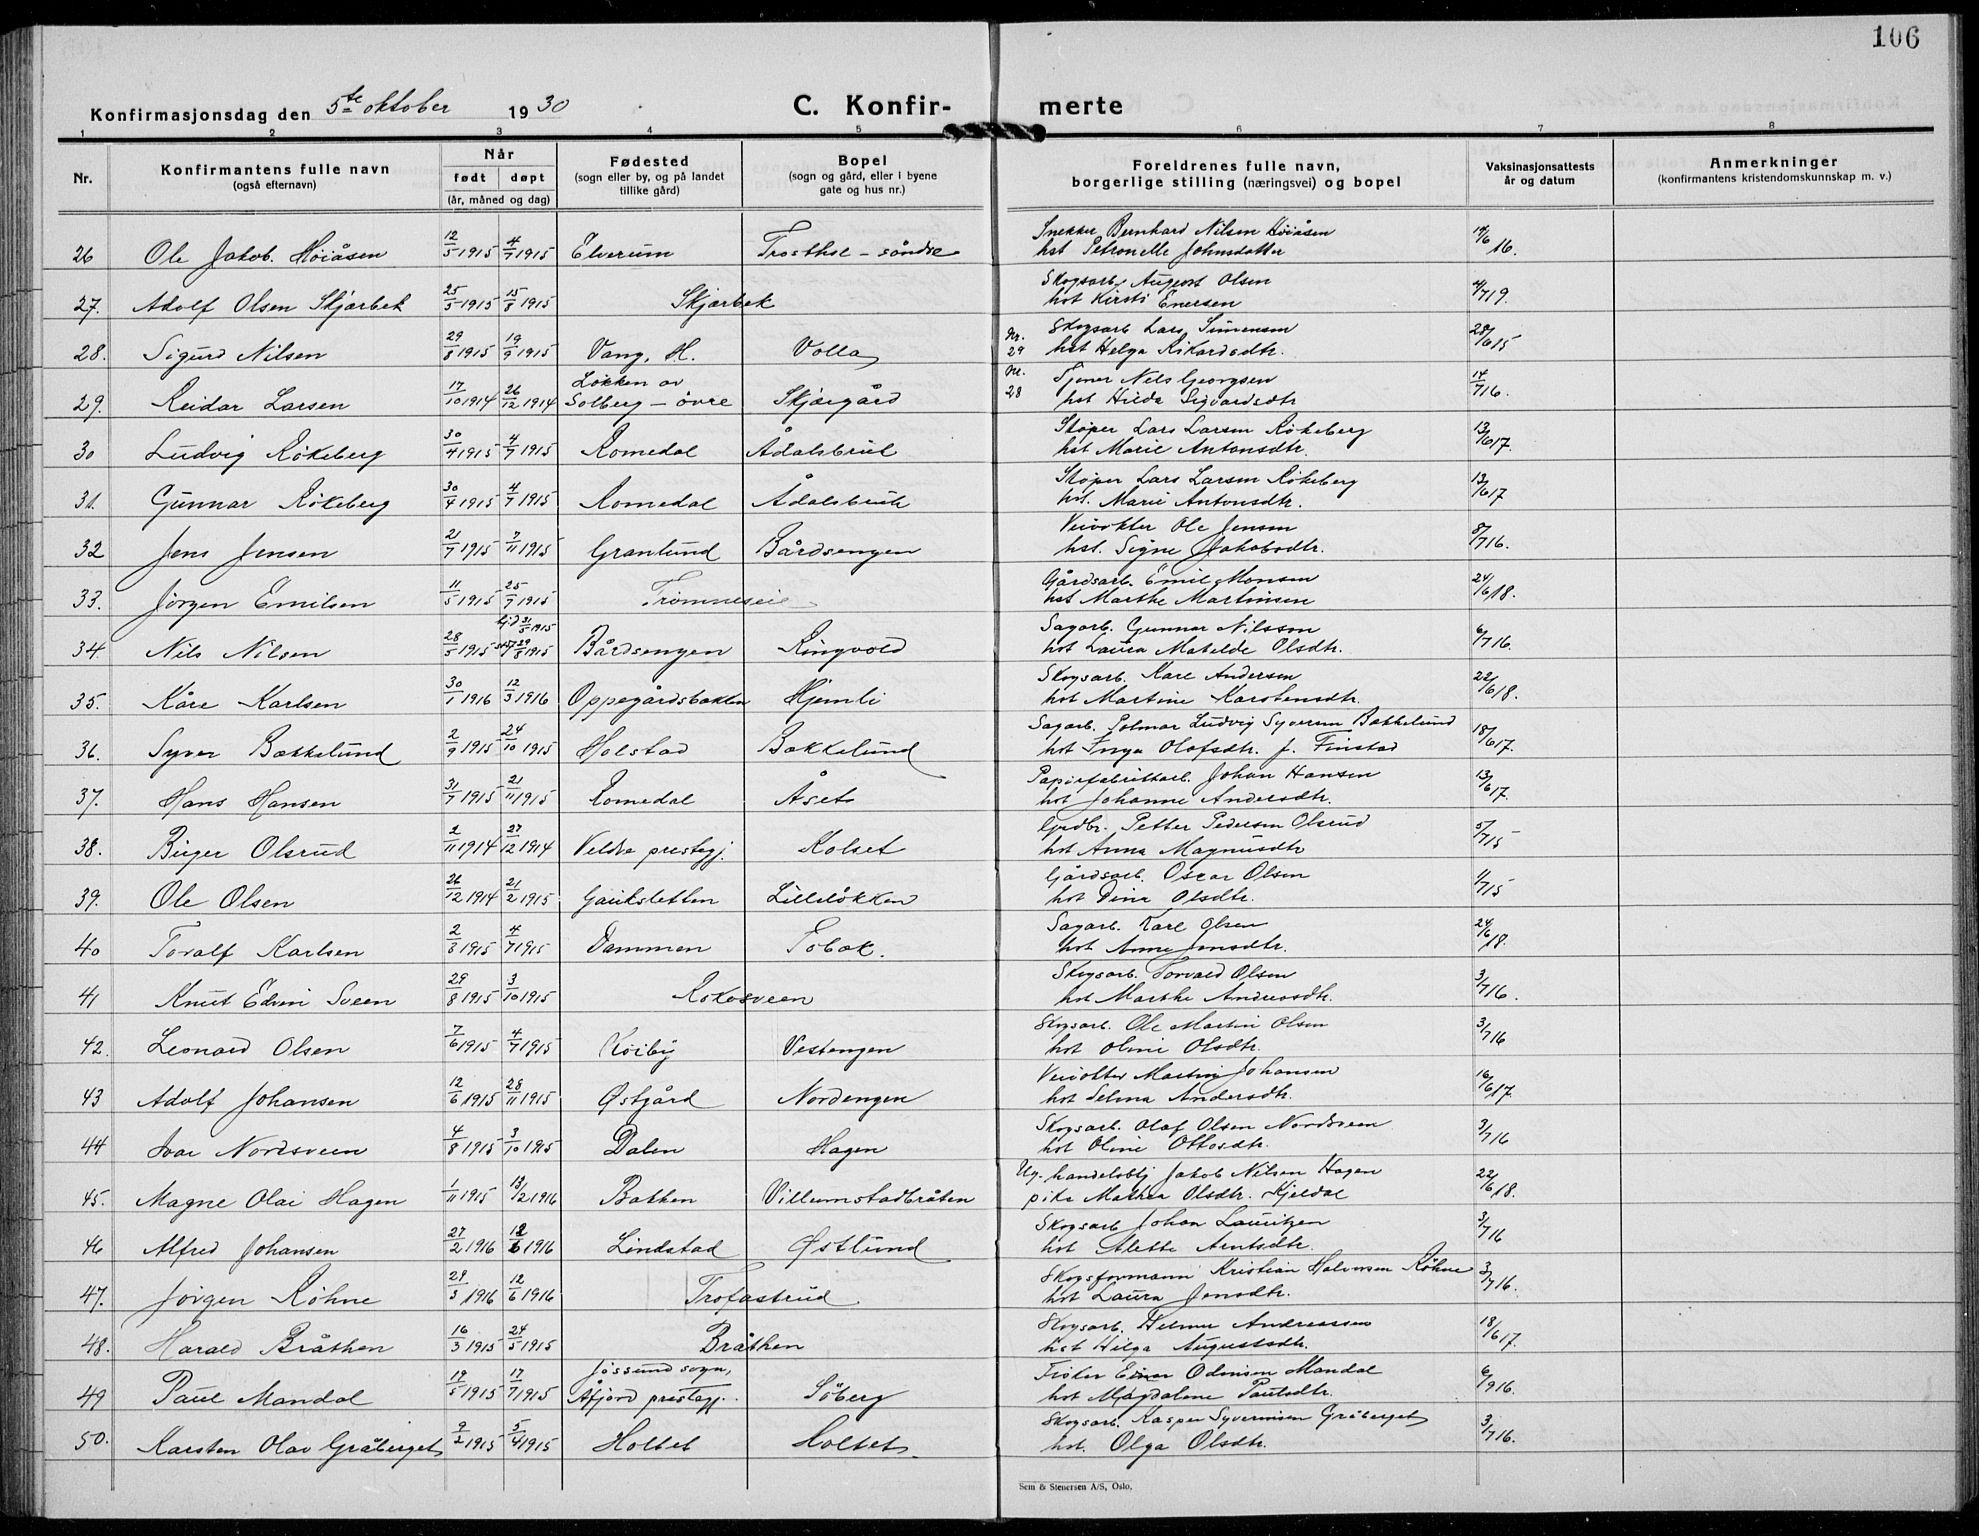 106
Konfirmasjonsdag den 5te oktober 1930
C. Konfir-
merte
1 2 3 4 5 6 7 8
Nr.
Konfirmantens fulle navn
(også efternavn)
Når
født døpt
(år, måned og dag)
Fødested
(sogn eller by, og på landet
tillike gård)
Bopel
(sogn og gård, eller i byene
gate og hus nr.)
Foreldrenes fulle navn,
borgerlige stilling (næringsvei) og bopel
Vaksinasjonsattests
år og datum
Anmerkninger
(konfirmantens kristendomskunnskap m. v.)
26 Ole Jakob Høiåsen 12/5 1915 4/7 1915 Elverum Trosthol - søndre Snekker Bernhard Nilsen Høiåsen
hst Petronelle Johnsdatter 16.
27. Adolf Olsen Skjærbek 25/5 1915 15/8 1915 Skjærbek Skogsarb. August Olsen
hst Kirsti Enersen 19.
28. Sigurd Nilsen 29/8 1915 19/9 1915 Vang, H. Volla Nr. 29 Skogsarb Lars Simensen
hst Helga Rikardsdtr. 28/6 15
29. Reidar Larsen 17/10 1914 26/12 1914 Løkken av
Solberg - øvre Skjægård Nr. 28 Tjener Nels Georgsen
hst Hilda Sigvardsdtr 14/7 16.
30 Ludvig Røkeberg 30/4 1915 4/7 1915 Romedal Ådalsbruk Støper Lars Larsen Røkeberg
hst Marie Antonsdtr. 13/6 17.
31. Gunnar Røkeberg 30/4 1915 4/7 1915 Romedal Ådalsbruk Støper Lars Larsen Røkeberg
hst. Marie Antonsdtr. 13/6 17
32 Jens Jensen 21/7 1915 7/11 1915 Granlund Bårdsengen Veivokter Ole Jensen
hst. Signe Jakobsdtr. 8/7 16.
33. Jørgen Emilsen 11/5 1915 25/7 1915 Trømneseie Gårdsarb. Emil Monsen
hst Marthe Martinsen 24/6 18.
34. Nils Nilsen 28/5 1915 hjd 31/5 1915 29/8 1915 Bårdsengen Ringvold Sagarb. Gunnar Nilsson
hst Laura Matelde Olsdtr. 6/7 16.
35. Kåre Karlsen 30/1 1916 12/3 1916 Oppegårdsbakken Hjemli Skogsarb. Kare Andersen
hst Martine Karstensdtr. 22/6 18.
36. Syver Bækkelund 2/9 1915 24/10 1915 Holstad Bækkelund Sagarb. Polmar Ludvig Syversen Bækkelund
hst Inga Olafsdtr. f. Finstad 18/6 17.
37. Hans Hansen 31/7 1915 21/11 1915 Romedal Åset Papirfabrikkarb. Johan Hansen
hst Johanne Andersdtr. 13/6 17.
38. Birger Olsrud 2/11 1914 27/12 1914 Veldre prestegj. Kolset Grdbr. Petter Pedersen Olsrud
hst Anna Magnusdtr 5/7 15
39. Ole Olsen 26/12 1914 21/2 1915 Gaukstetten Lilleløkken Gårdsarb. Oscar Olsen
hst Dina Olsdtr. 1/7 15
40 Toralf Karlsen 2/3 1915 4/7 1915 Dammen Tobak. Sagarb. Karl Olsen
hst Anne Jensdtr. 24/6 18.
41 Knut Edvin Sveen 29/8 1915 3/10 1915 Rokosveen Skogsarb. Torvald Olsen
hst Marthe Andreasdtr. 3/7 16.
42. Leonard Olsen 7/6 1915 4/7 1915 Koiby Vestengen Skogsarb. Ole Martin Olsen
hst Oline Olsdtr. 3/7 16
43 Adolf Johansen 12/6 1915 28/11 1915 Østgård Nordengen Veivokter Martin Johansen
hst Selma Andersdtr. 16/6 17.
44 Ivar Nordsveen 4/8 1915 3/10 1915 Dalen Hagen Skogsarb. Olaf Olsen Nordsveen
hst Oline Ottosdtr. 3/7 16
45. Magne Olai Hagen 1/11 1915 13/2 1916 Bakken Villumstadbråten Ug. handelsbtj Jakob Nilsen Hagen
pike Mathea Olsdtr. Kjeldal 22/6 18.
46 Alfred Johansen 27/2 1916 12/6 1916 Lindstad Østlund Skogsarb Johan Lauritzen
hst Alette Arntsdtr. 3/7 16
47. Jørgen Røhne 29/3 1916 12/6 1916 Trofastrud Skogsformann Kristian Halvorsen Røhne
hst Laura Jensdtr. 3/7 16.
48. Harald Bråthen 16/3 1915 24/5 1915 Bråthen Skogsarb. Helmer Andreassen
hst Helga Augustsdtr. 18/6 17.
49 Paul Mandal 19/5 1915 17/7 1915 Jøssund sogn,
Åfjord prestegj. Søberg Fisker Einar Odinsen Mandal
hst Magdalene Paulsdtr. 6/9 16.
50. Karsten Olav Gråberget 9/2 1915 5/4 1915 Holtet Holtet Skogsarb. Kasper Syverinsen Gråberget
hst. Olga Olsdtr. 3/7 16.
Sem & Stenersen A/S, Oslo.